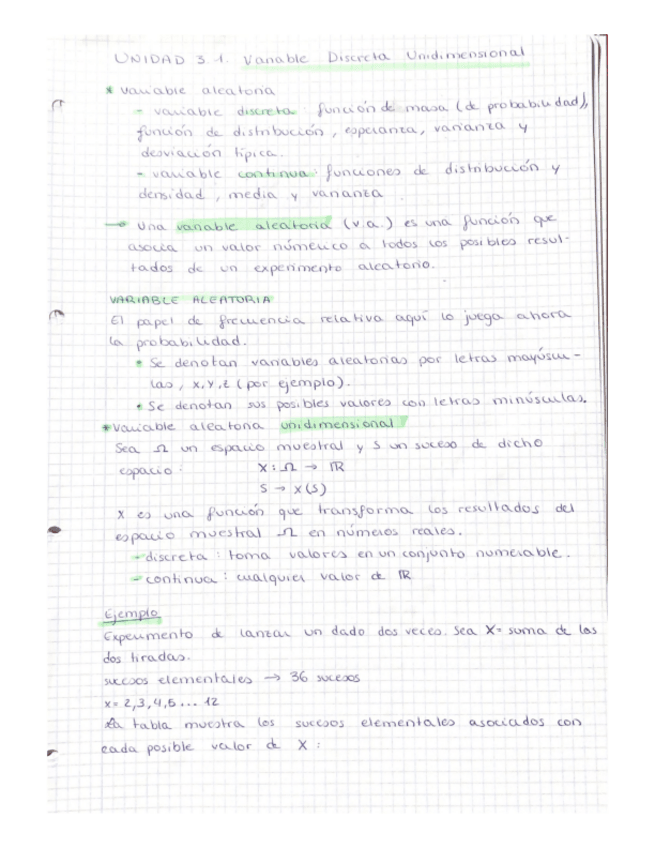 UNIDAD 3.1. Variable Discreta Unidimensional
* variable aleatoria
- variable discreta: función de masa (de probabilidad),
función de distribución, esperanza, varianza y
desviación típica.
- variable continua: funciones de distribución y
densidad, media y varianza
→ Una variable aleatoria (v.a.) es una función que
asocia un valor númerico a todos los posibles resul-
tados de un experimento aleatorio.
VARIABLE ALEATORIA
El papel de frecuencia relativa aquí lo juega ahora
la probabilidad.
• Se denotan variables aleatorias por letras mayúscu-
las, x, y, z (por ejemplo).
• Se denotan sus posibles valores con letras minúsculas.
* variable aleatoria unidimensional
Sea Ω un espacio muestral y s un suceso de dicho
espacio: X: Ω → ℝ
s → x(s)
x es una función que transforma los resultados del
espacio muestral Ω en números reales.
- discreta: toma valores en un conjunto numerable.
- continua: cualquier valor de ℝ
Ejemplo
Experimento de lanzar un dado dos veces. Sea X= suma de las
dos tiradas.
sucesos elementales → 36 sucesos
x= 2,3,4,5... 12
La tabla muestra los sucesos elementales asociados con
cada posible valor de X: